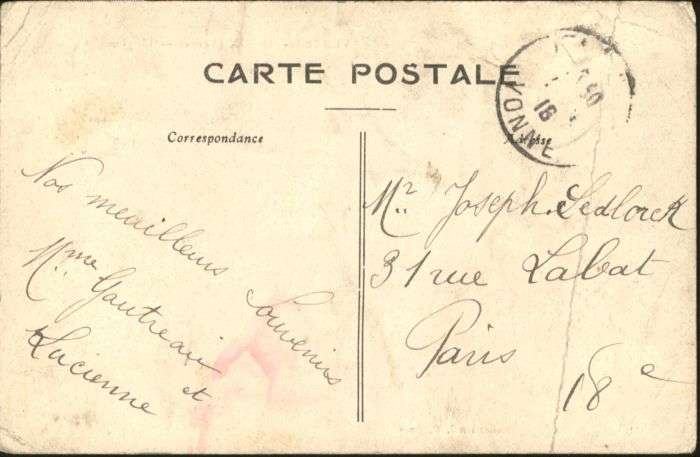 CARTE POSTALE
Correspondance
Nos meailleurs souvenirs
Mme Gautreau et
Lucienne
YONNE
50
18
Mr. Joseph Sedlorek
31 rue Labat
Paris
18e